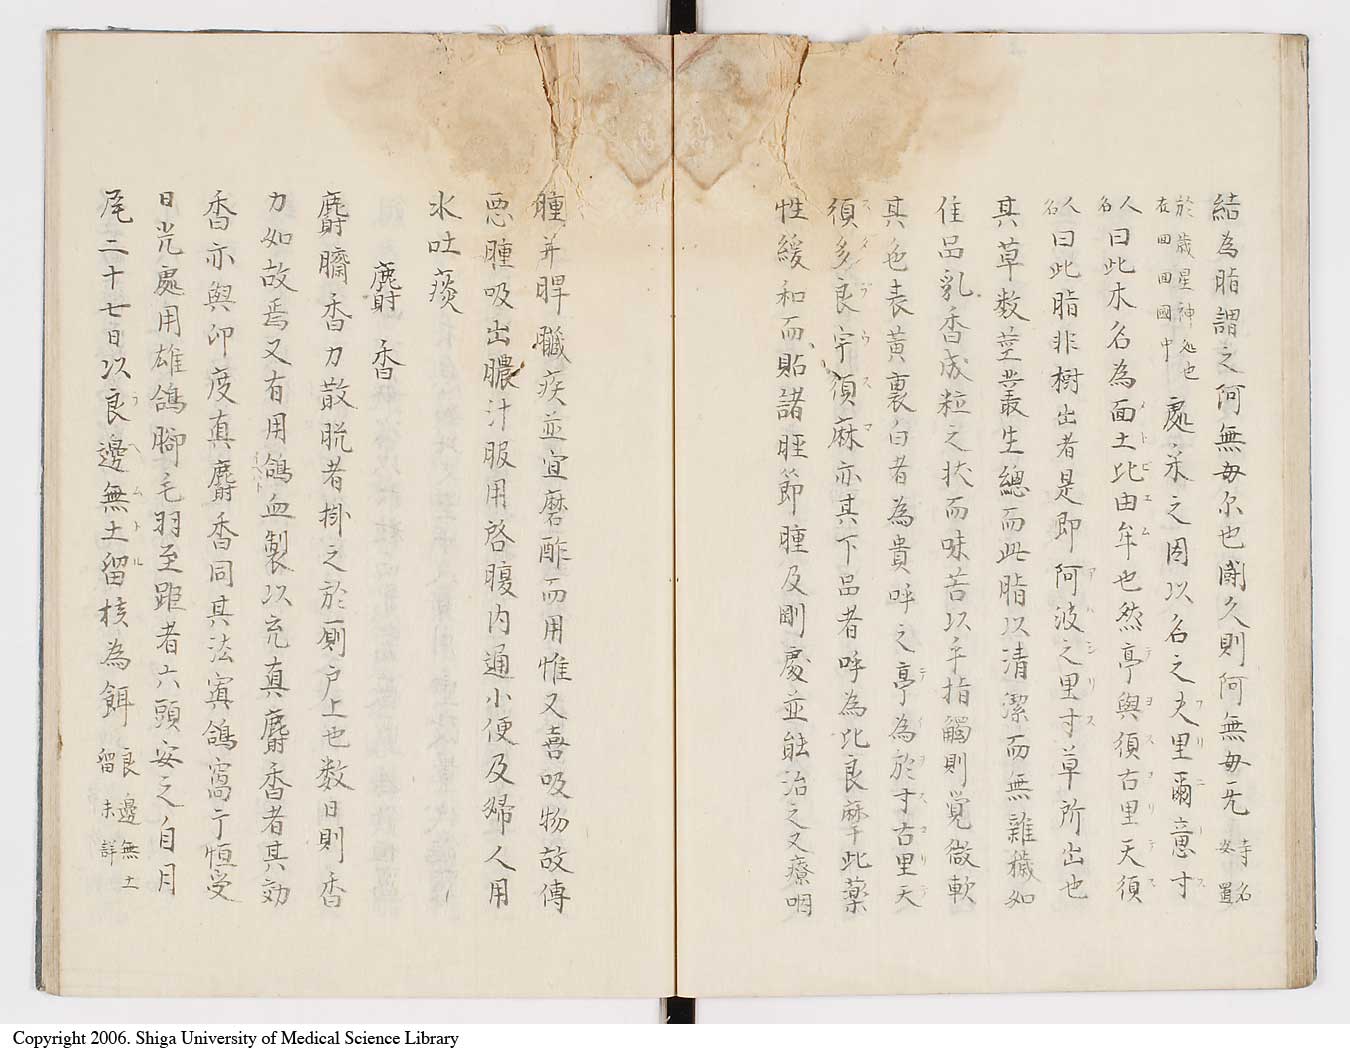 結為脂謂之阿無毎尓也閑久則阿無毎旡寺名安置
於歳星神処也在回回國中處采之因以名之夫里爾意寸
人名曰此木名為面土比由牟也然亭與須古里天須
人名曰此脂非樹出者是即阿波之里寸草所出也
其草数莖叢生總而此脂以清潔而無雜穢如
佳品乳香成粒之状而味苦以手指觸則覚微軟
其色表黄裏白者為貴呼之亭為於寸古里天
須多良宇須麻亦其下品者呼為比良麻于此薬
性緩和而貼諸脛節腫及剛慶並能治之又療咽
腫并脾臓疾並宜磨酢而用惟又喜吸物故傳
悪腫吸出膿汁服用啓腹内通小便及婦人用
水吐痰
麝香
麝臍香力散脱者掛之於厠戸上也数日則香
力如故焉又有用鴿血製以充真麝香者其効
香亦與印度真麝香同其法寘鴿窩于恒受
日光處用雄鴿脚毛羽至距者六頭安之自月
尾二十七日以良邊無土留核為餌良邊無土留未詳
Copyright 2006. Shiga University of Medical Science Library